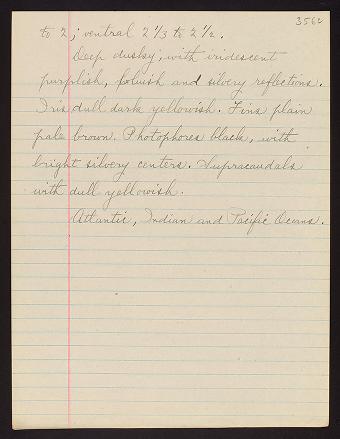 3562
to 2; ventral 2 1/3 to 2 1/2.
Deep dusky, with iridescent
purplish, bluish and silvery reflections.
Iris dull dark yellowish. Fins plain
pale brown. Photophores black, with
bright silvery centers. Supracaudals
with dull yellowish.
Atlantic, Indian and Pacific Oceans.